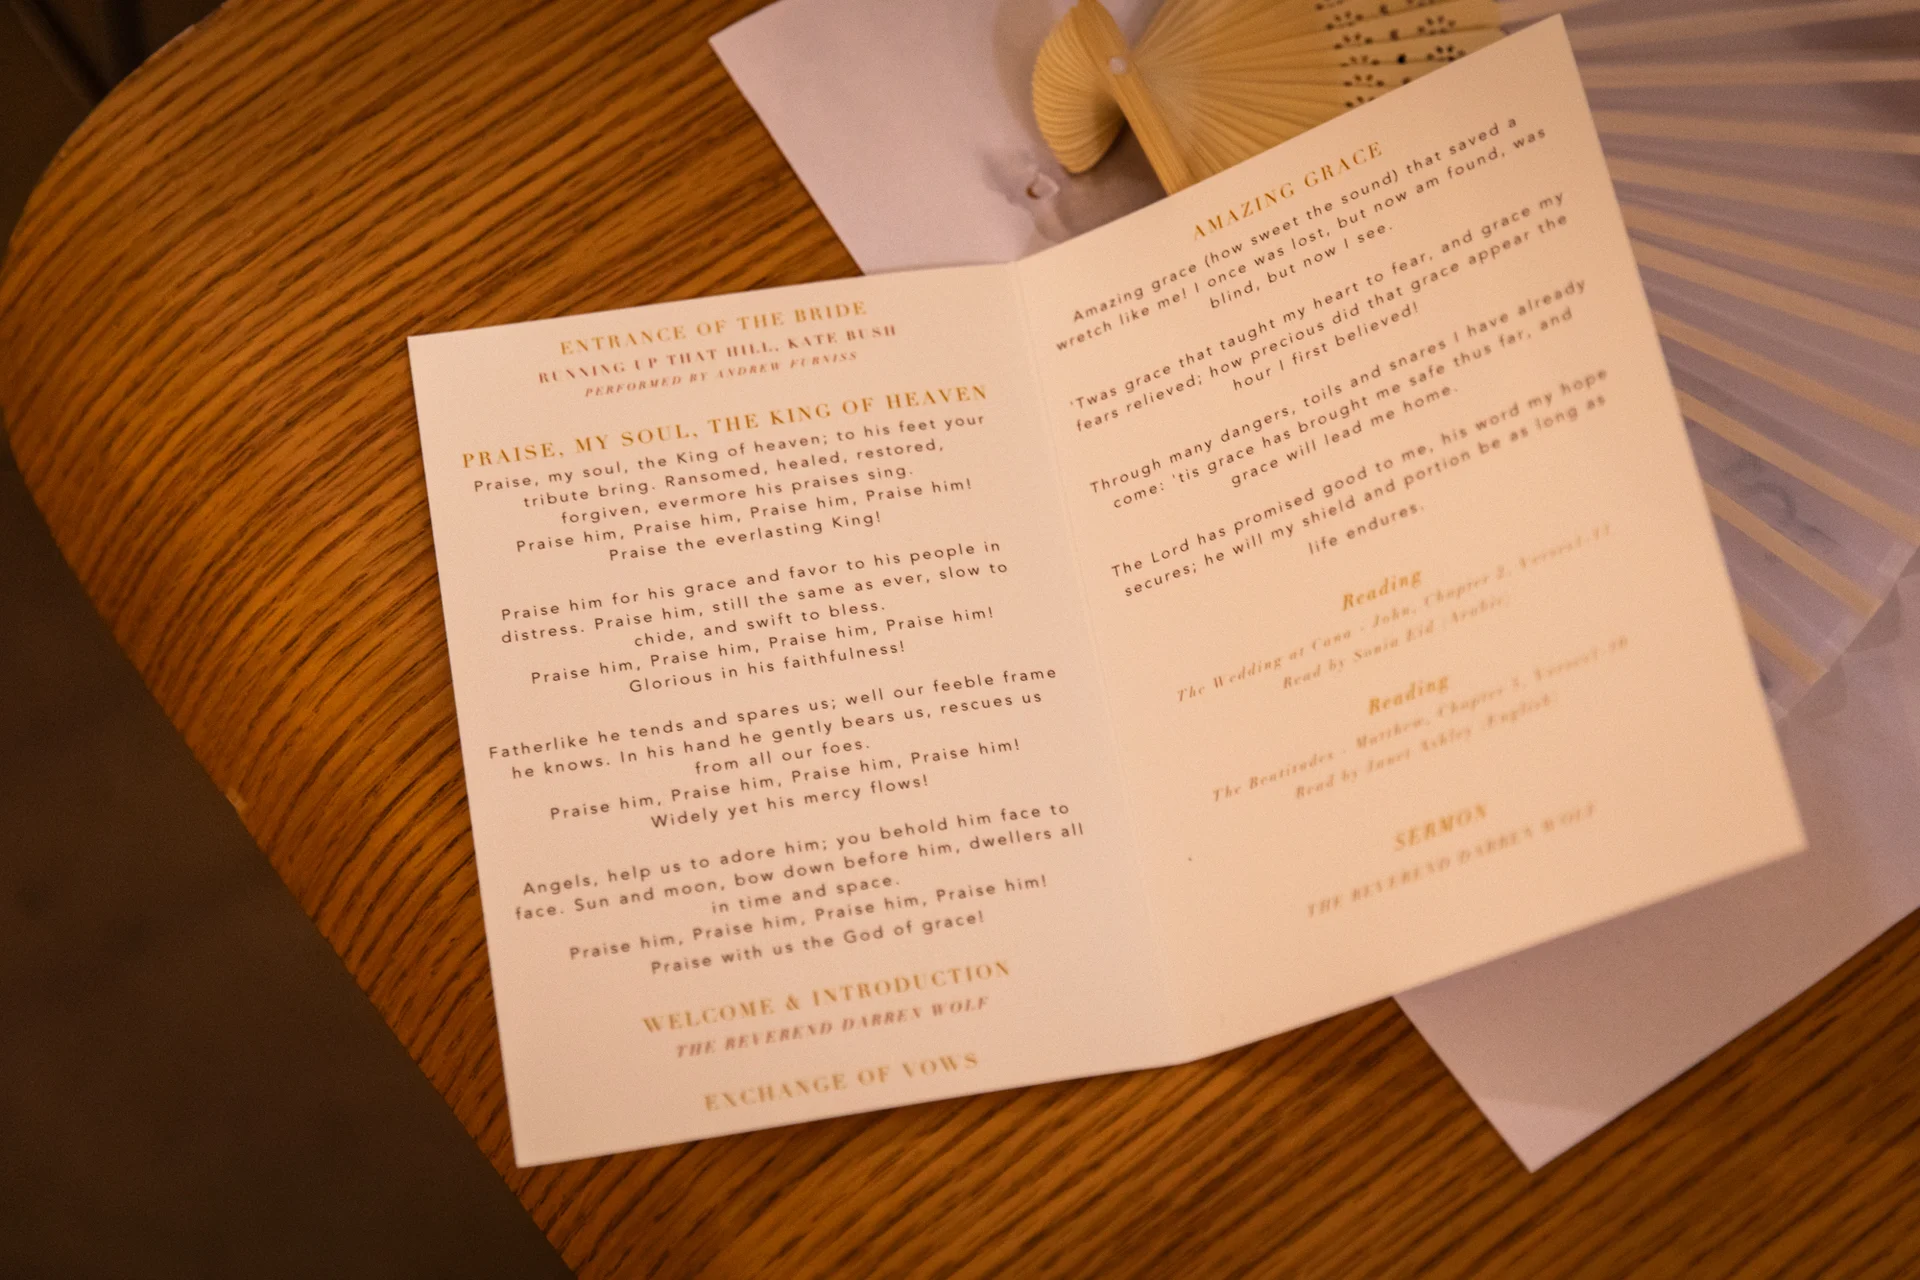 ENTRANCE OF THE BRIDE
RUNNING UP THAT HILL, KATE BUSH
PERFORMED BY ANDREW FURNISS
PRAISE, MY SOUL, THE KING OF HEAVEN
Praise, my soul, the King of heaven; to his feet your
tribute bring. Ransomed, healed, restored,
forgiven, evermore his praises sing.
Praise him, Praise him, Praise him, Praise him!
Praise the everlasting King!
Praise him for his grace and favor to his people in
distress. Praise him, still the same as ever, slow to
chide, and swift to bless.
Praise him, Praise him, Praise him, Praise him!
Glorious in his faithfulness!
Fatherlike he tends and spares us; well our feeble frame
he knows. In his hand he gently bears us, rescues us
from all our foes.
Praise him, Praise him, Praise him, Praise him!
Widely yet his mercy flows!
Angels, help us to adore him; you behold him face to
face. Sun and moon, bow down before him, dwellers all
in time and space.
Praise him, Praise him, Praise him, Praise him!
Praise with us the God of grace!
WELCOME & INTRODUCTION
THE REVEREND DARREN WOLF
EXCHANGE OF VOWS
AMAZING GRACE
Amazing grace (how sweet the sound) that saved a
wretch like me! I once was lost, but now am found, was
blind, but now I see.
'Twas grace that taught my heart to fear, and grace my
fears relieved; how precious did that grace appear the
hour I first believed!
Through many dangers, toils and snares I have already
come: 'tis grace has brought me safe thus far, and
grace will lead me home.
The Lord has promised good to me, his word my hope
secures; he will my shield and portion be as long as
life endures.
Reading
The Wedding at Cana - John, Chapter 2, Verses
Read by Sonia Eid (Arabic)
Reading
The Beatitudes - Matthew, Chapter Verses
Read by Janet Ashley (English)
SERMON
THE REVEREND DARREN WOLF